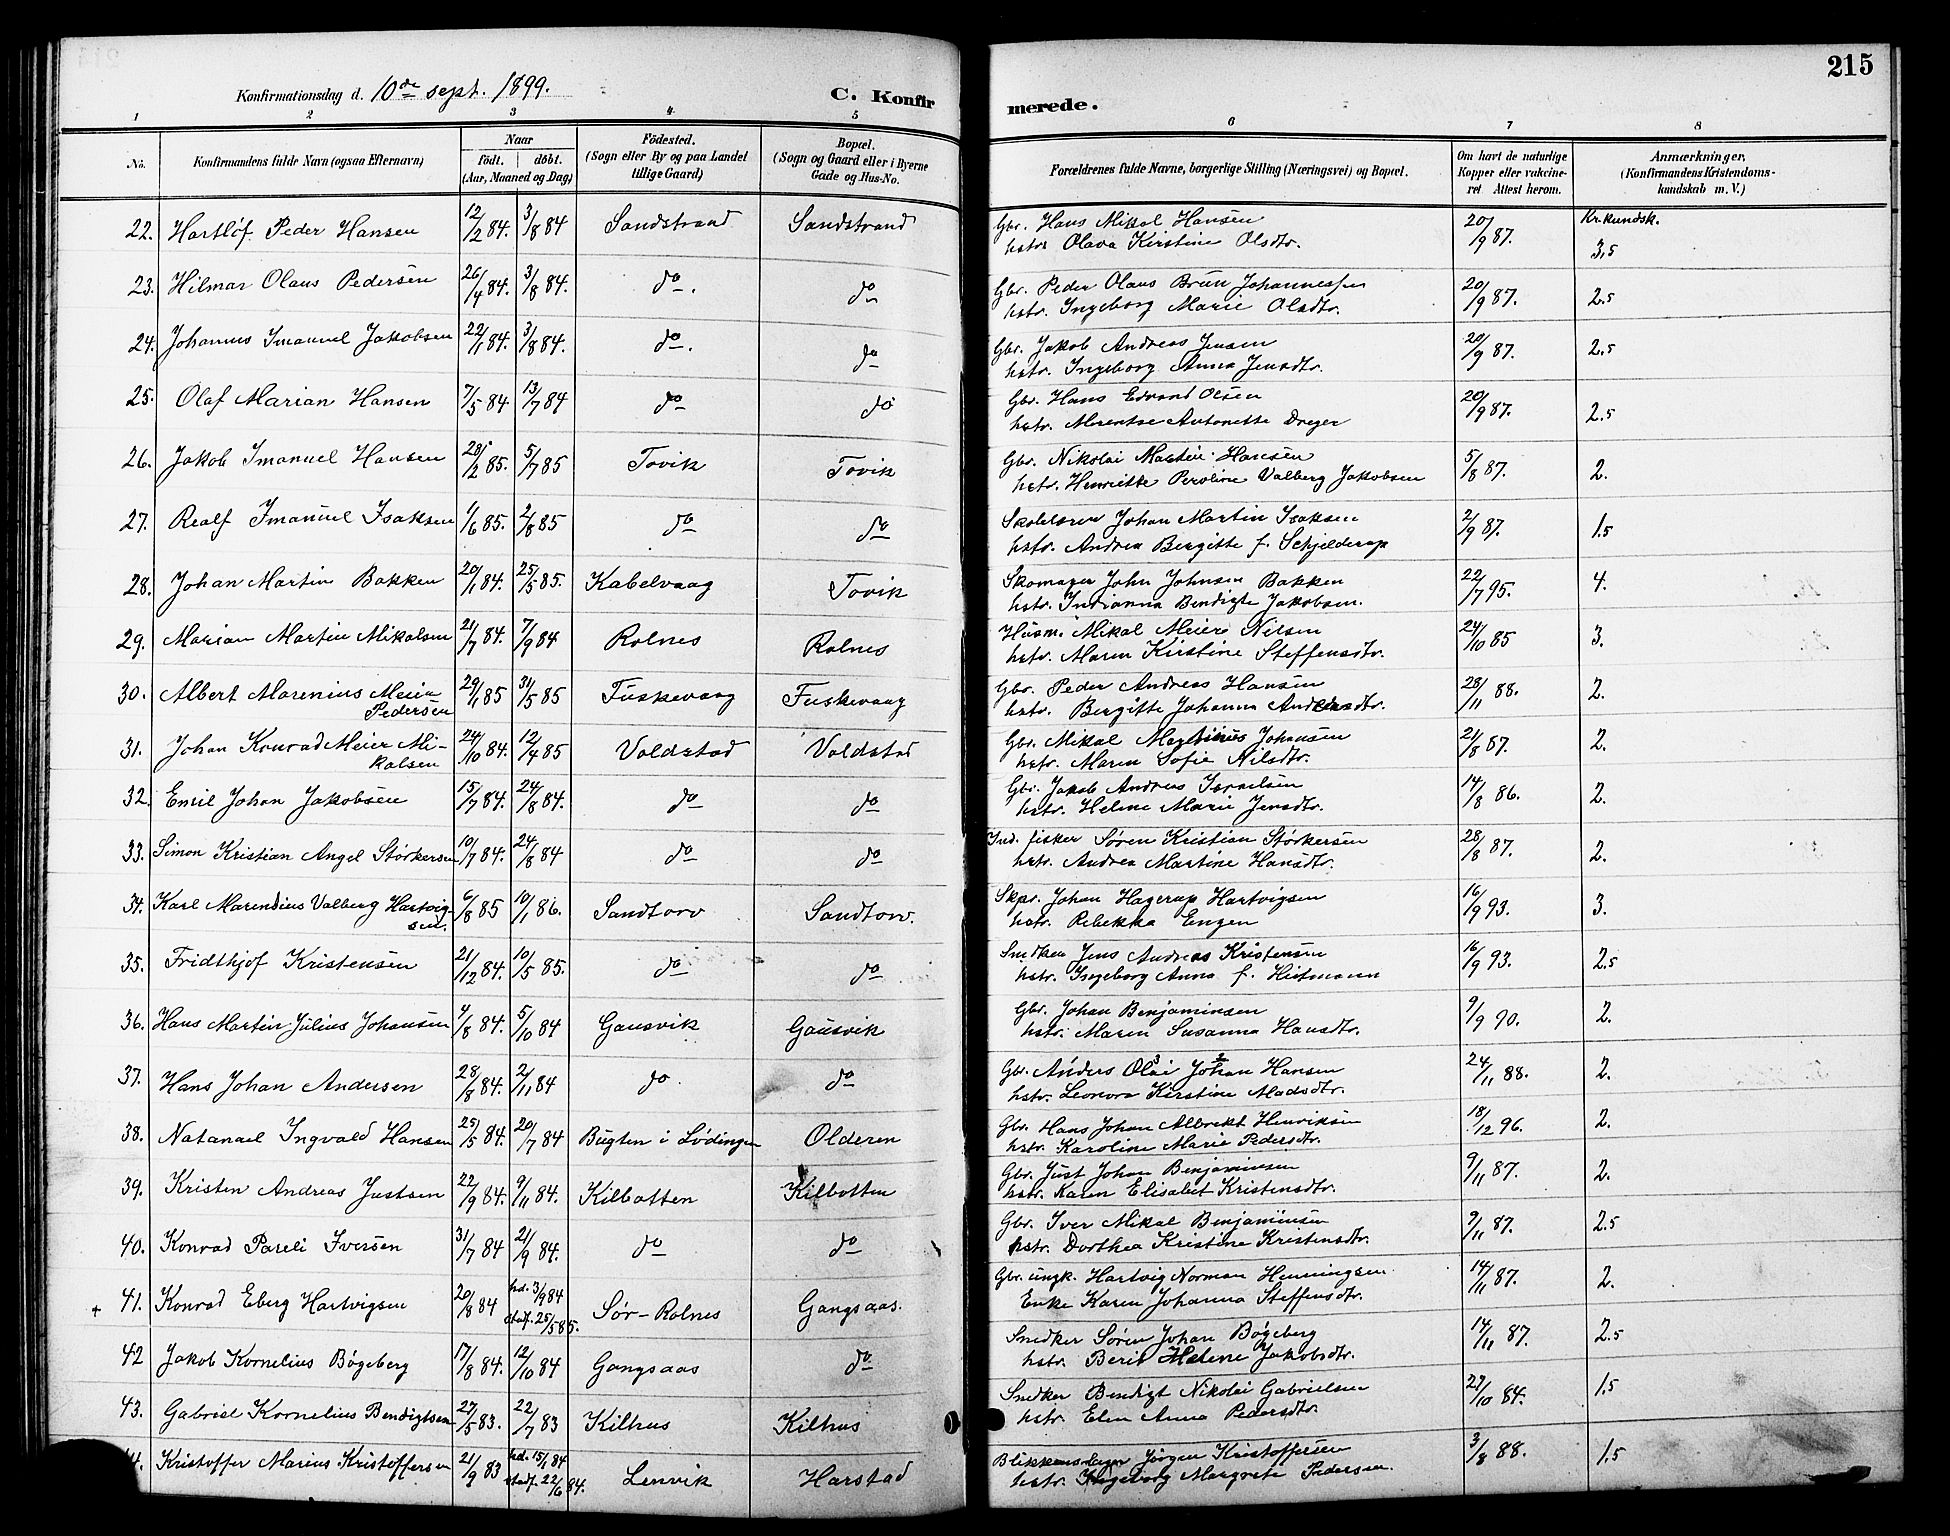 215
Konfirmationsdag d. 10de sept. 1899.
C. Konfirmerede.
1 2 3 4 5 6 7 8
No.
Konfirmandens fulde Navn (ogsaa Efternavn)
Naar
födt. döbt.
(Aar, Maaned og Dag)
Födested.
(Sogn eller By og paa Landet
tillige Gaard)
Bopæl.
(Sogn og Gaard eller i Byerne
Gade og Hus-No.
Forældrenes fulde Navne, borgerlige Stilling (Næringsvei) og Bopæl.
Om havt de naturlige
Kopper eller vakcine-
ret Attest herom.
Anmærkninger,
(Konfirmandens Kristendoms-
kundskab m. V.)
22. Hartløf Peder Hansen 12/2 84. 3/8 84 Sandstrand Sandstrand Gbr. Hans Mikal Hansen 20/9 87. Kr. kundsk.
hstr. Olava Kirstine Olsdtr. 3,5
23. Hilmar Olaus Pedersen 26/4 84. 3/8 84. do. do Gbr. Peder Olaus Brun Johannessen 20/9 87. 2.5
hstr. Ingeborg Marie Olsdtr.
24. Johannes Imanuel Jakobsen 22/1 84. 3/8 84. do. do Gbr. Jakob Andreas Jensen 20/9 87. 2,5
hstr. Ingeborg Anna Jensdtr.
25. Olaf Marian Hansen 7/5 84 13/7 84 do do Gbr. Hans Edvard Olsen 20/9 87. 2.5
hstr. Merentse Antonette Dreyer
26. Jakob Imanuel Hansen 28/2 85. 5/7 85 Tovik Tovik Gbr. Nikolai Martin Hansen 5/8 87. 2.
hstr. Henriette Peroline Valberg Jakobsen
27. Realf Imanuel Isaksen 1/6 85. 2/8 85 do do Skolelærer Johan Martin Isaksen 2/9 87. 1.5
hstr. Andrea Bergitte f. Schjelderup
28. Johan Martin Bakken 20/1 84. 25/5 85. Kabelvaag Tovik Skomager John Johnsen Bakken 22/7 95. 4.
hstr. Indianna Bendigte Jakobsen.
29. Marian Martin Mikalsen 21/7 84. 7/9 84 Rolnes Rolnes Husm. Mikal Meier Nilsen 24/10 85 3.
hstr. Maren Kirstine Steffensdtr.
30. Albert Marenius Meier 29/1 85 31/5 85 Fuskevaag Fuskevaag Gbr. Peder Andreas Hansen 28/11 88. 2.
Pedersen hstr. Bergitte Johanna Andersdtr.
31. Johan Konrad Meier Mi- 24/10 84. 12/4 85 Voldstad Voldstad Gbr. Mikal Martinus Johansen 21/8 87. 2.
kalsen hstr. Maren Sofie Nilsdtr.
32. Emil Johan Jakobsen 15/7 84. 24/8 84. do do Gbr. Jakob Andreas Israelsen 14/8 86. 2.
hstr. Helene Marie Jensdtr.
33. Simon Kristian Angel Störkersen 10/7 84. 24/8 84 do do Ind. fisker Søren Kristian Størkersen 28/8 87. 2.
hstr. Andrea Martine Hansdtr.
34. Karl Marendius Valberg Hartvig- 6/8 85 10/1 86. Sandtorv Sandtorv. Skpr. Johan Hagerup Hartvigsen 16/9 93. 3.
sen. hstr. Rebekka Engen
35. Fridthjof Kristensen 21/12 84. 10/5 85. do do Snedker Jens Andreas Kristensen 16/9 93. 2.5
hstr. Ingeborg Anna f.
36. Hans Martin Julius Johansen 4/8 84. 5/10 84 Gausvik Gausvik Gbr. Johan Benjaminsen 9/9 90. 2.
hstr. Maren Susanna Hansdtr.
37. Hans Johan Andersen 28/8 84. 2/11 84 do. do Gbr. Anders Olai Johan Hansen 24/11 88. 2.
hstr. Leonora Kirstine Madsdtr.
38. Natanael Ingvald Hansen 25/5 84. 20/7 84 Bugten i Lødingen Olderen Gbr. Hans Johan Albrekt Henriksen 18/12 96. 2.
hstr. Karoline Marie Pedersdtr.
39. Kristen Andreas Justsen 22/9 84. 9/11 84. Kilbotten Kilbotten Gbr. Just Johan Benjaminsen 9/11 87. 2.
hstr. Karen Elisabet Kristensdtr.
40. Konrad Pareli Iversen 31/7 84 21/9 84. do do Gbr. Iver Mikal Benjaminsen 9/11 87. 2.5
hstr. Dorthea Kristine Kristensdtr.
+ 41. Konrad Eberg Hartvigsen 20/8 84 hd. 3/9 84 Sør-Rolnes Gangsaas. Gbr. ungk. Hartvig Norman Henningsen 14/11 87. 2.
stadf. 25/5 85. Enke Karen Johanna Steffensdtr.
42 Jakob Kornelius Bögeberg 17/8 84. 12/10 84 Gangsaas do Snedker Søren Johan Bögeberg 14/11 87. 2.5
hstr. Berit Helene Jakobsdtr.
43. Gabriel Kornelius Bendigtsen 27/5 83. 22/7 83 Kilhus Kilhus Snedker Bendigt Nikolai Gabrielsen 27/10 84. 1.5
hstr. Elen Anna Pedersdtr.
4. Kristoffer Marius Kristoffersen 21/9 83 hd. 15/1 84 Lenvik Harstad Blikkenslager Jörgen Kristoffersen 3/8 88. 1,5
stadf. 22/6 84. hstr. Ingeborg Margrete Pedersen.